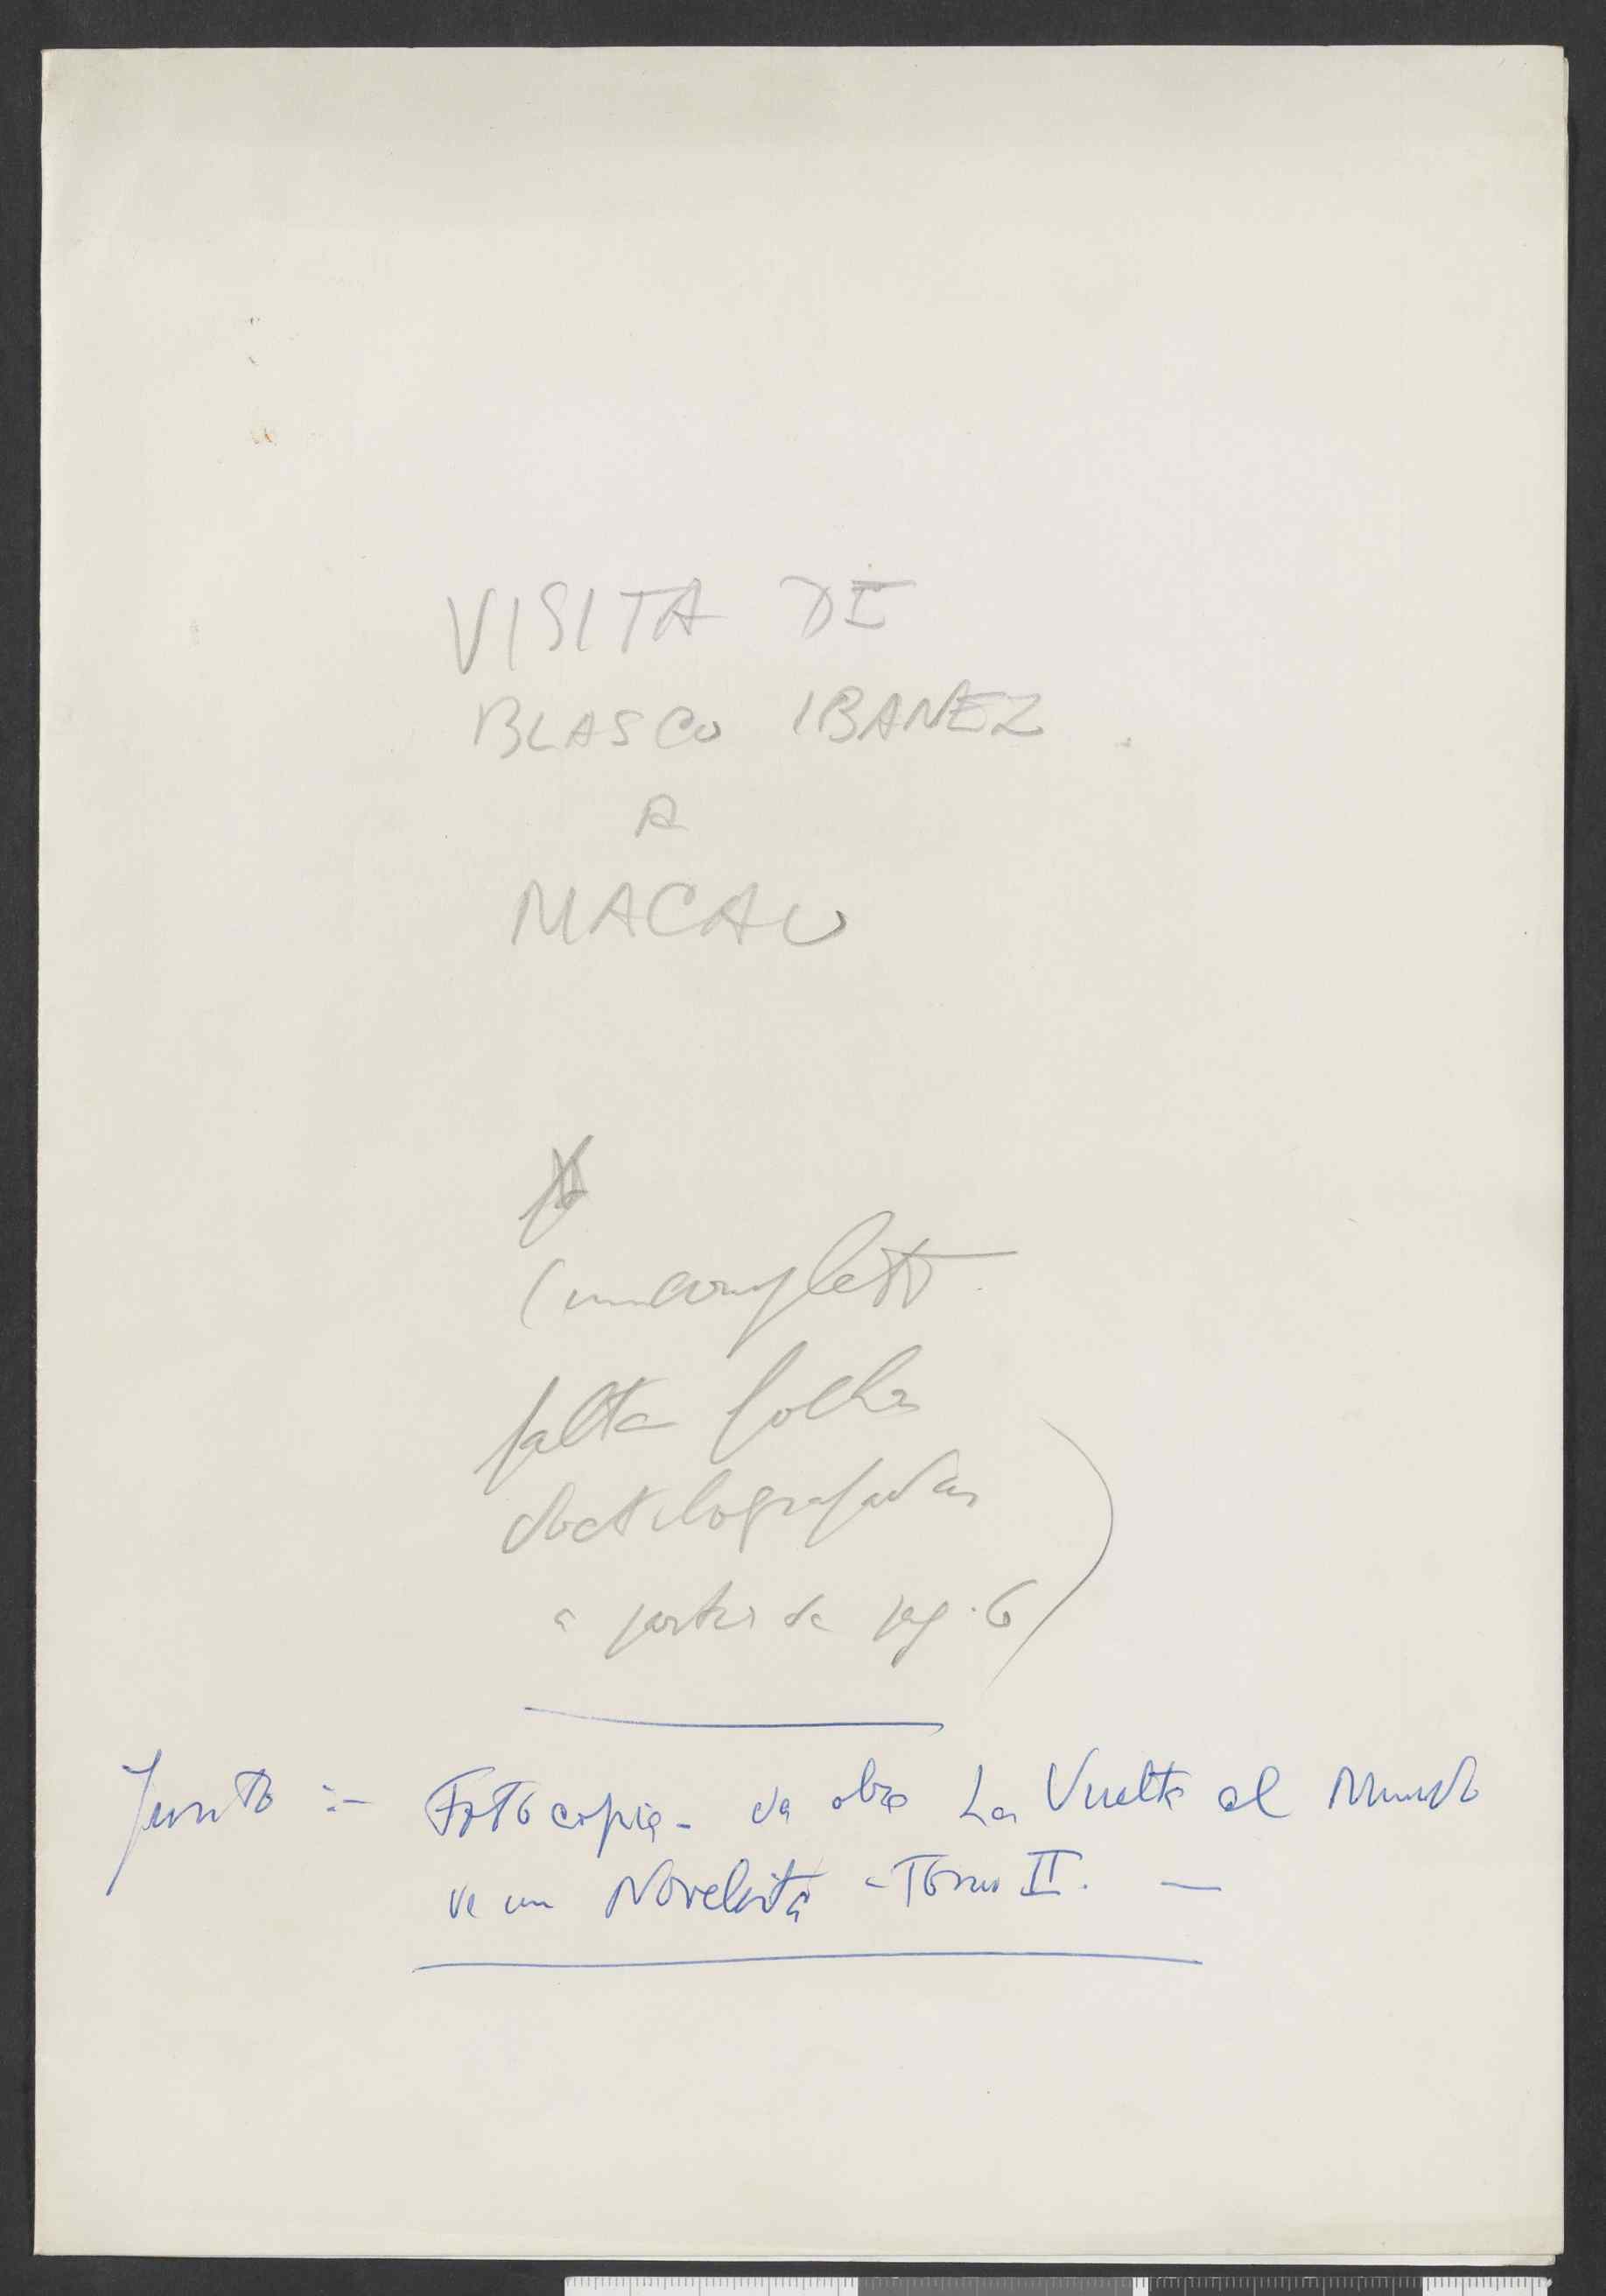 VISITA DE
BLASCO IBANEZ
A
MACAU
(incompleto
falta folhas
dactilografadas
a partir da pag. 6)
Junto :- Fotocopia - da obra La Vuelta al Mundo
de un Novelista - Tomo II. —